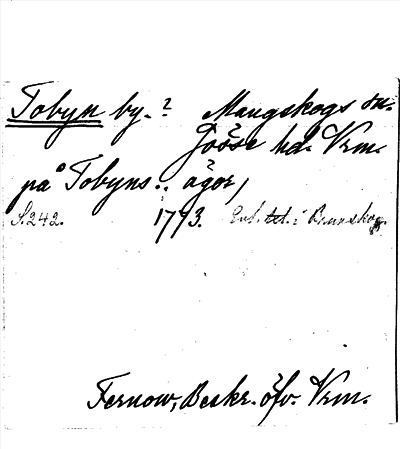 Tobyn by.? Mangskogs sn.
Jösse hd. Vrm.
på Tobyns.. ägor,
S. 242. 1773. Enl. tet. i Brunskog.
Fernow, Beskr. öfv. Vrm.